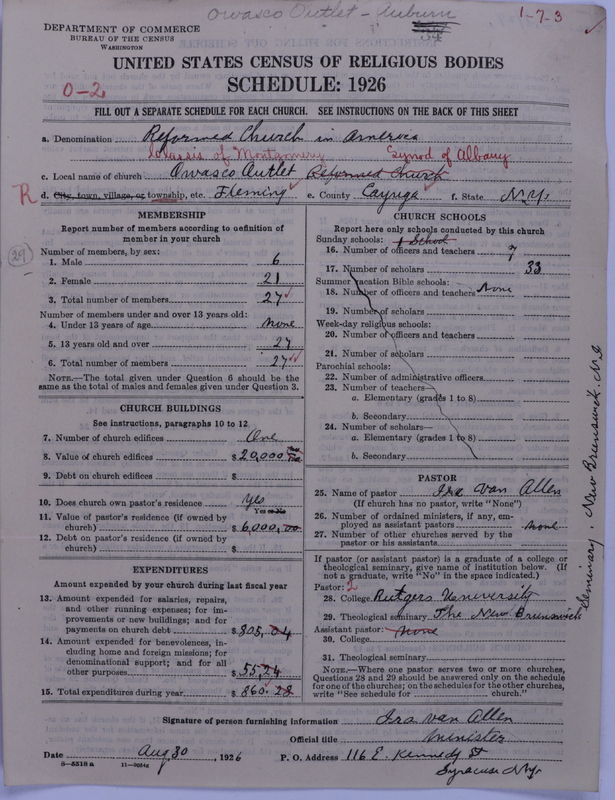 Owasco Outlet - Auburn
1-7-3
DEPARTMENT OF COMMERCE
BUREAU OF THE CENSUS
WASHINGTON
34
UNITED STATES CENSUS OF RELIGIOUS BODIES
SCHEDULE: 1926
0-2
FILL OUT A SEPARATE SCHEDULE FOR EACH CHURCH. SEE INSTRUCTIONS ON THE BACK OF THIS SHEET
a. Denomination Reformed Church in America
Classis of Montgomery Synod of Albany
c. Local name of church Owasco Outlet Reformed Church
R d. City, town, village, or township, etc. Fleming e. County Cayuga f. State N.Y.
MEMBERSHIP
Report number of members according to definition of member in your church
Number of members, by sex:
1. Male 6
2. Female 21
3. Total number of members 27
Number of members under and over 13 years old:
4. Under 13 years of age none
5. 13 years old and over 27
6. Total number of members 27
NOTE.—The total given under Question 6 should be the same as the total of males and females given under Question 3.
29
CHURCH BUILDINGS
See instructions, paragraphs 10 to 12
7. Number of church edifices One
8. Value of church edifices $20,000
9. Debt on church edifices $
10. Does church own pastor's residence Yes
Yes or No
11. Value of pastor's residence (if owned by church) $6,000,00
12. Debt on pastor's residence (if owned by church) $
EXPENDITURES
Amount expended by your church during last fiscal year
13. Amount expended for salaries, repairs, and other running expenses; for improvements or new buildings; and for payments on church debt $805,04
14. Amount expended for benevolences, including home and foreign missions; for denominational support; and for all other purposes $55,24
15. Total expenditures during year $860.28
CHURCH SCHOOLS
Report here only schools conducted by this church
Sunday schools: 1 School
16. Number of officers and teachers 7
17. Number of scholars 33
Summer vacation Bible schools:
18. Number of officers and teachers None
19. Number of scholars
Week-day religious schools:
20. Number of officers and teachers
21. Number of scholars
Parochial schools:
22. Number of administrative officers
23. Number of teachers—
a. Elementary (grades 1 to 8)
b. Secondary
24. Number of scholars—
a. Elementary (grades 1 to 8)
b. Secondary
PASTOR
25. Name of pastor Ira Van Allen
(If church has no pastor, write "None")
26. Number of ordained ministers, if any, employed as assistant pastors none
27. Number of other churches served by the pastor or his assistants
If pastor (or assistant pastor) is a graduate of a college or theological seminary, give name of institution below. (If not a graduate, write "No" in the space indicated.)
Pastor: 2
28. College Rutgers University
29. Theological seminary The New Brunswick
Seminary, New Brunswick, N.J.
Assistant pastor: None
30. College
31. Theological seminary
NOTE.—Where one pastor serves two or more churches, Questions 28 and 29 should be answered only on the schedule for one of the churches; on the schedules for the other churches, write "See schedule for church."
Signature of person furnishing information Ira Van Allen
Official title minister
Date Aug 30, 1926 P. O. Address 116 E. Kennedy St
Syracuse N.Y.
8-5518a 11-9024a